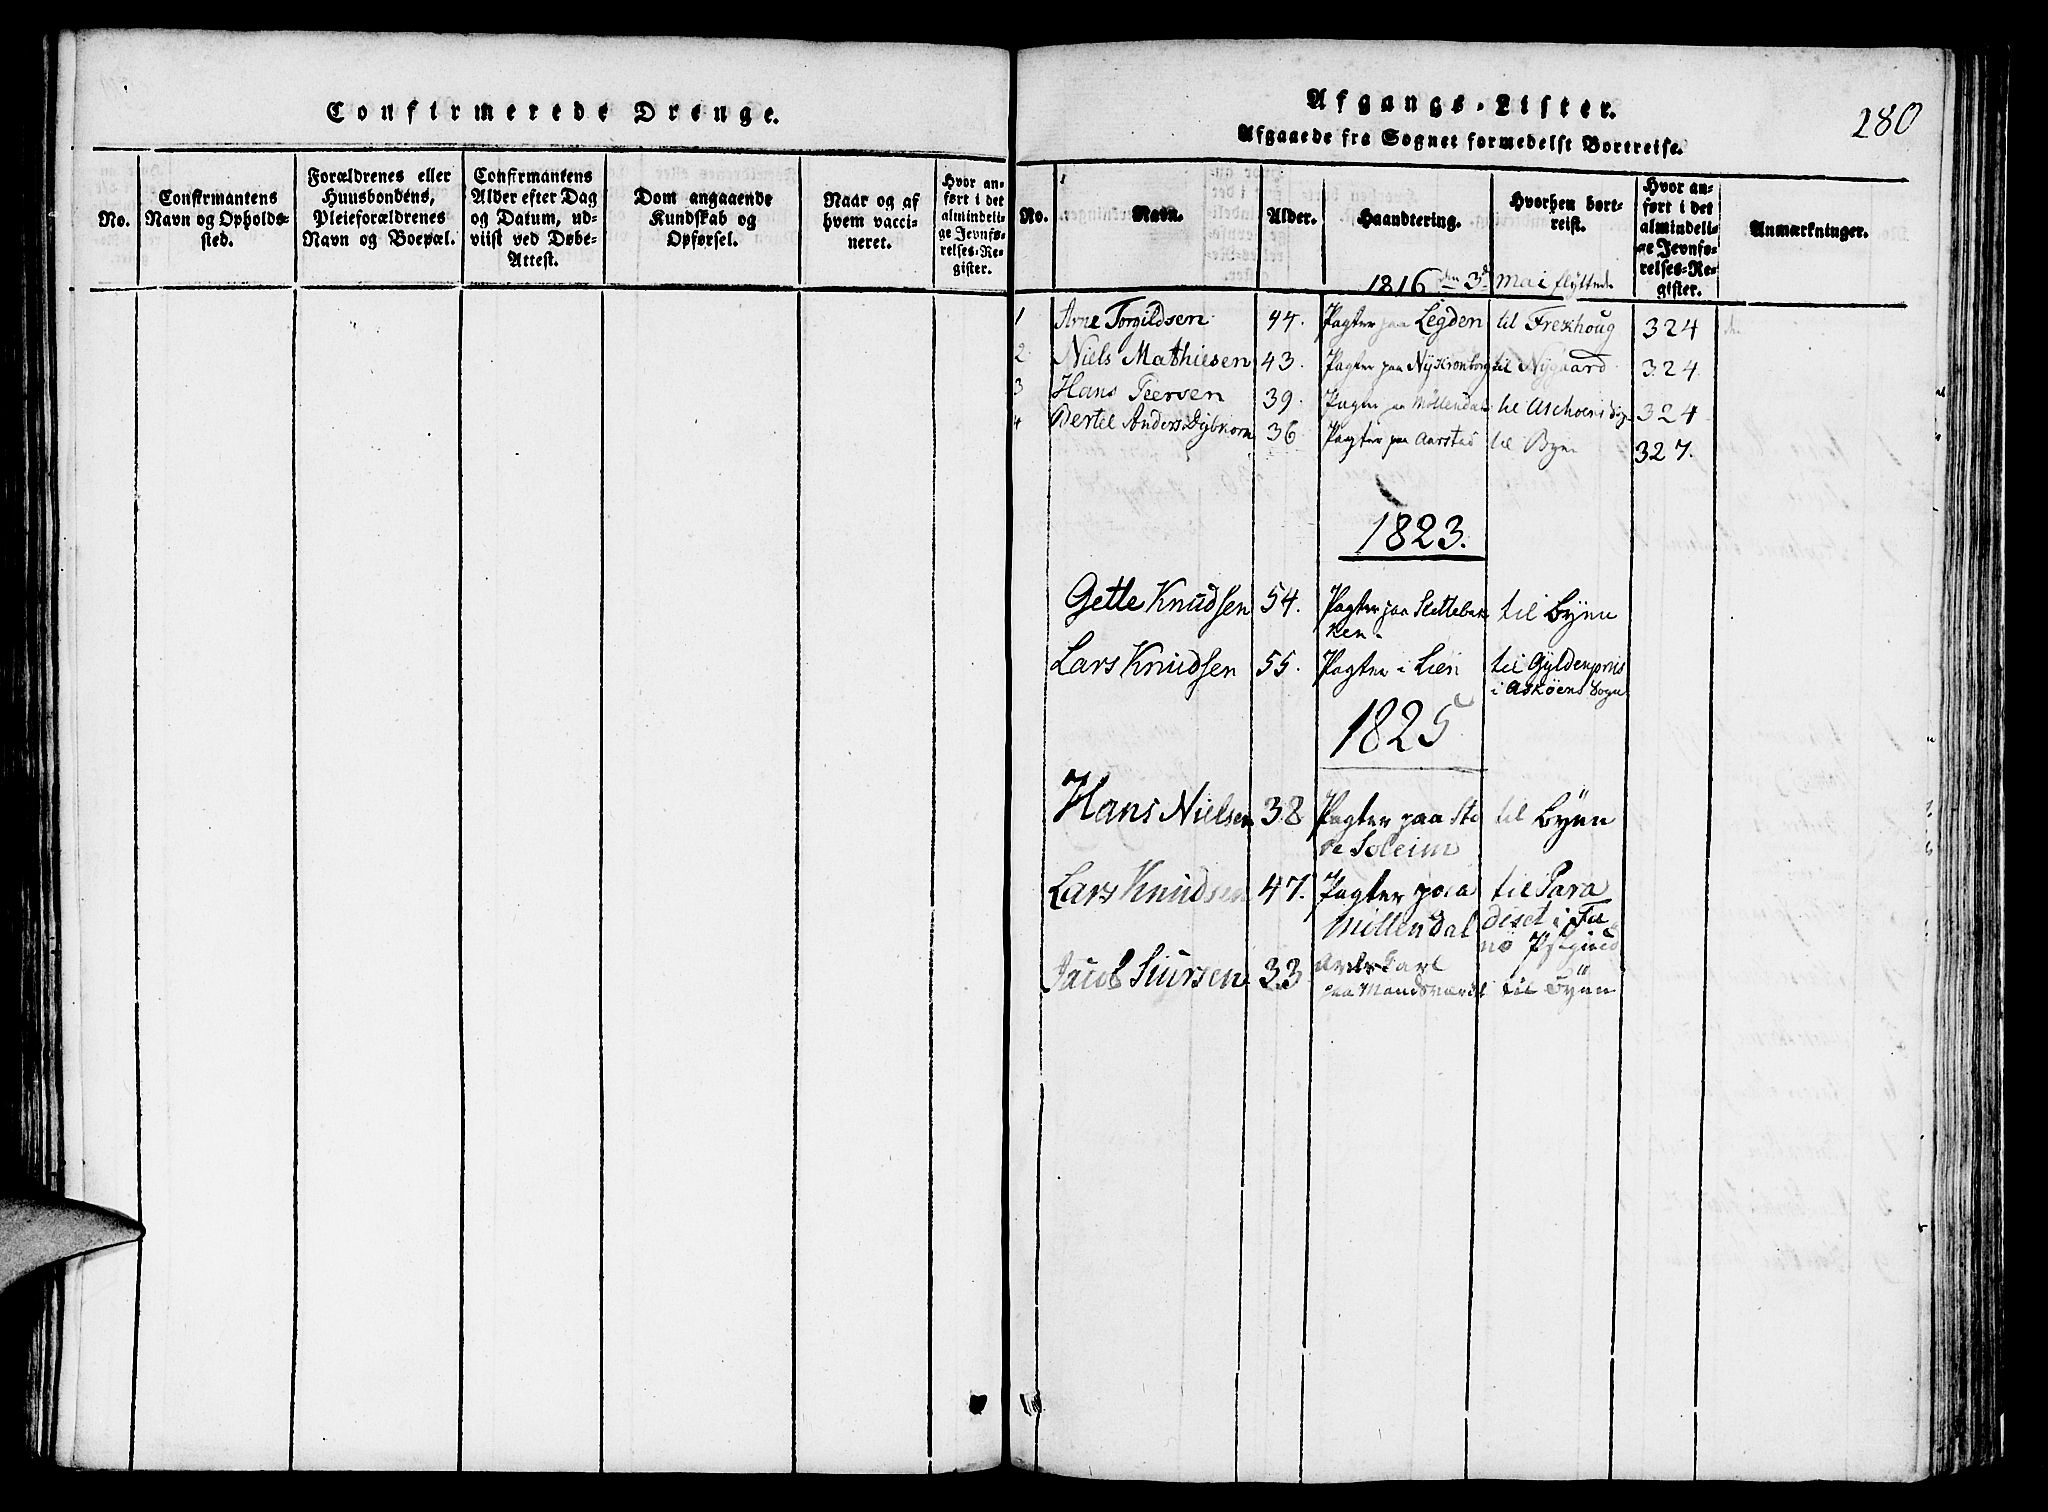 Confirmerede Drenge.
No.
Confirmantens
Navn og Opholds-
sted.
Forældrenes eller
Huusbondens,
Pleieforældrenes
Navn og Boepæl.
Confirmantens
Alder efter Dag
og Datum, ud-
viist ved Døbe-
Attest.
Dom angaaende
Kundskab og
Opførsel.
Naar og af
hvem vacci-
neret.
Hvor an-
ført i det
almindeli-
ge Jevnfø-
relses-Re-
gister.
280
Afgangs-Lister.
Afgaaede fra Sognet formedelst Bortreise.
No.
Navn.
Alder.
Haandtering.
Hvorhen bort-
reist.
Hvor an-
ført i det
almindeli-
ge Jevnfø-
relses-Re-
gister.
Anmærkninger.
1816 den 3d Mai flyttede
1 Arne Torgildsen 44. Pagter paa Legden til Frexhoug 324
2 Niels Mathiesen 43. Pagter paa Nyskronborg til Nygaard 324
3 Hans Peersen 39. Pagter paa Möllendal til Aschöens Sogn 324
4 Bertel Anders: Gybkorn 36 Pagter paa Aarstad til Byen 327.
1823.
Gette Knudsen 54. Pagter paa Slettebak til Byen
ken.
Lars Knudsen 55. Pagter i Lien til Gyldenpris
i Asköens Sogn
1825
Hans Nielsen 38 Pagter paa Sto til Byen
re Soleim
Lars Knudsen 47. Pagter paa til Para
Möllendal diset i Fa
nö
Jacob Siursen 33 Avlskarl
paa Mandsværk til Byen